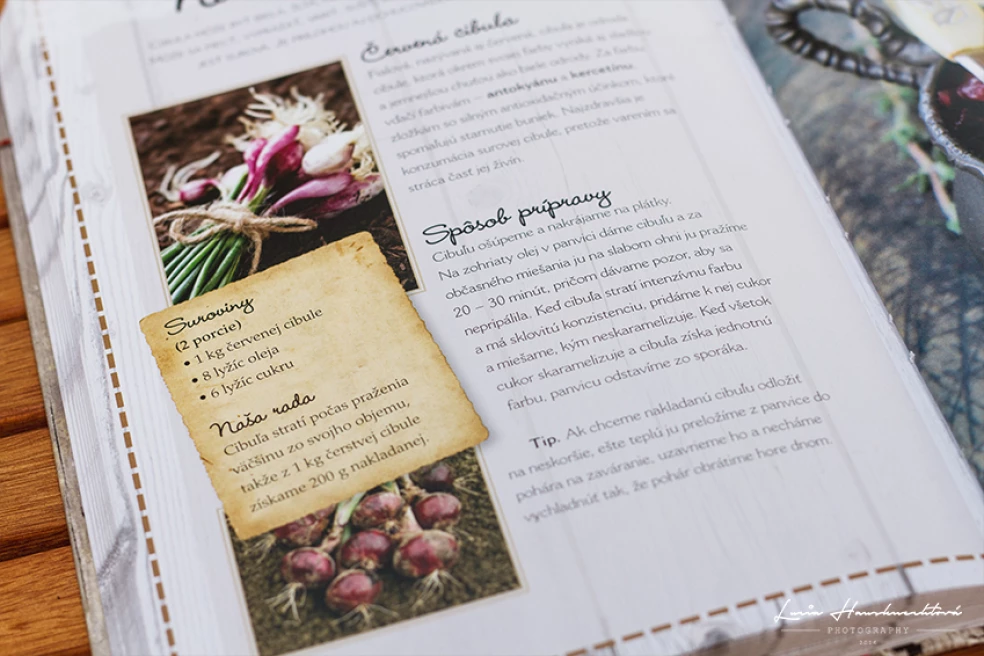 Červená cibuľa
vďačí farbivám – antokyánu a kercetínu,
zložkám so silným antioxidačným účinkom, ktoré
spomaľujú starnutie buniek. Najzdravšia je
konzumácia surovej cibule, pretože varením sa
stráca časť jej živín.
Spôsob prípravy
Cibuľu ošúpeme a nakrájame na plátky.
Na zohriaty olej v panvici dáme cibuľu a za
občasného miešania ju na slabom ohni ju pražíme
20 – 30 minút, pričom dávame pozor, aby sa
nepripálila. Keď cibuľa stratí intenzívnu farbu
a má sklovitú konzistenciu, pridáme k nej cukor
a miešame, kým neskaramelizuje. Keď všetok
cukor skaramelizuje a cibuľa získa jednotnú
farbu, panvicu odstavíme zo sporáka.
Tip. Ak chceme nakladanú cibuľu odložiť
na neskoršie, ešte teplú ju preložíme z panvice do
pohára na zaváranie, uzavrieme ho a necháme
vychladnúť tak, že pohár obrátime hore dnom.
Suroviny
(2 porcie)
• 1 kg červenej cibule
• 8 lyžíc oleja
• 6 lyžíc cukru
Naša rada
Cibuľa stratí počas praženia
väčšinu zo svojho objemu,
takže z 1 kg čerstvej cibule
získame 200 g nakladanej.
PHOTOGRAPHY